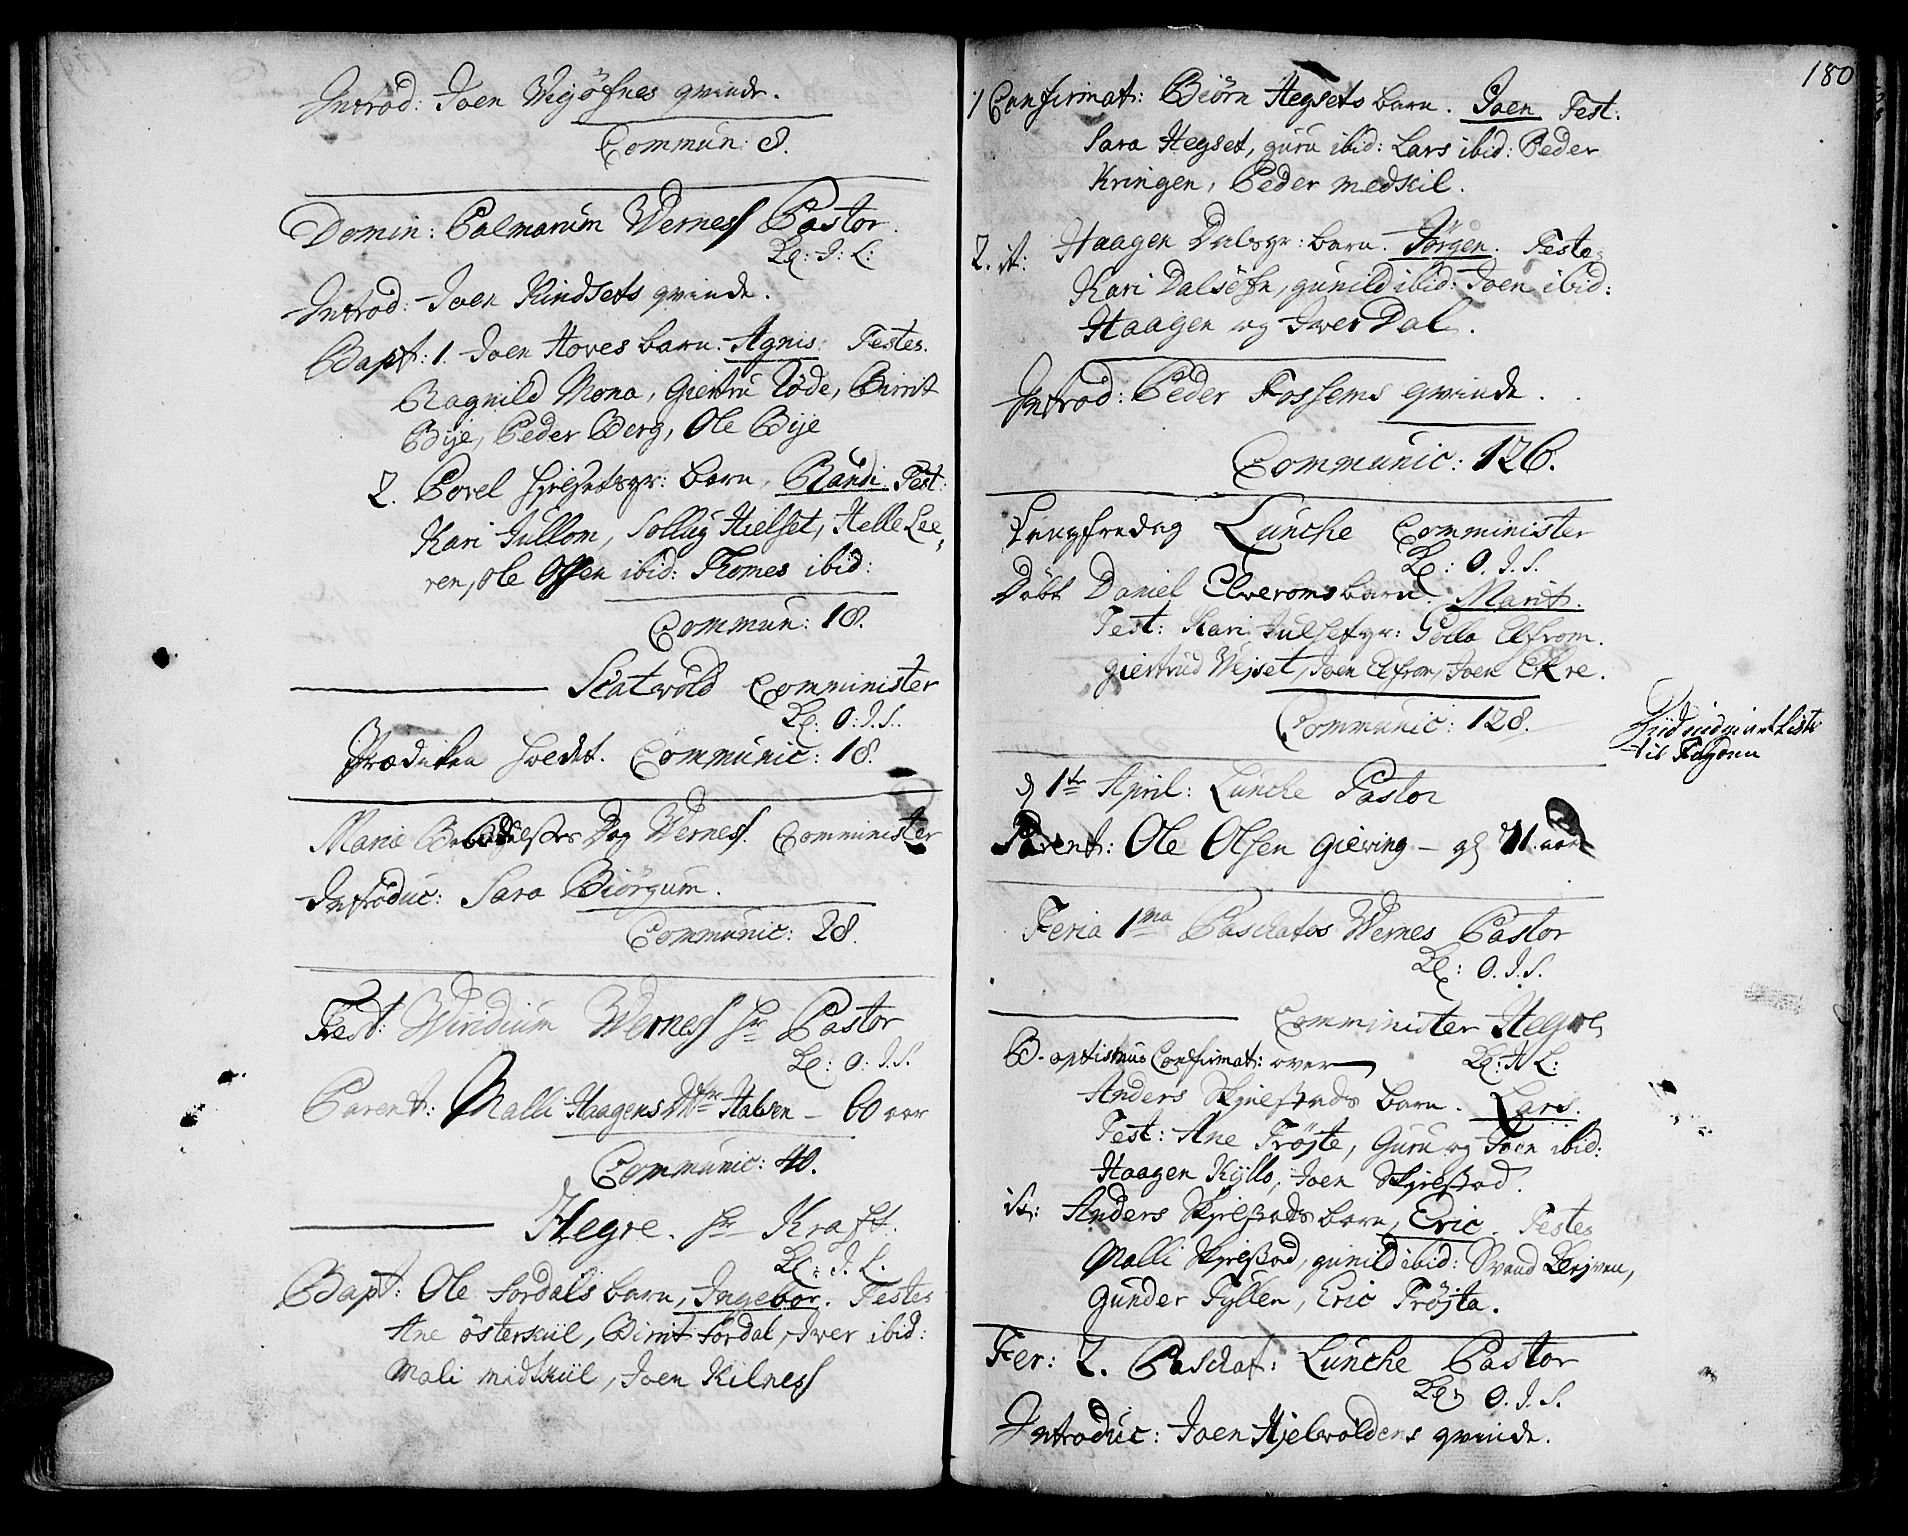 Introd: Joen Mejöfnes qvinde.
Commun: 8.
Domin: Palmarum Werness Pastor.
Introd: Joen Kindsets qvinde.
Bapt: 1. Joen Hoves barn. Agnis. Testes.
Ragnild Mona, Giertru Röde, Birrit
Bije, Peder Berg, Ole Bije
2. Povel Hielsetsgr: barn, Randi. Test:
Kari Jullom, Sollug Hielset, Helle Lee-
ren, Ole Olsen ibid: Thomes ibid:
Commun: 18.
Scatvold Comminister
O: J. S.
Prædiken holdt. Communic: 18.
Mariæ Dag Werness. Comminister
Introduc: Sara Biörgum.
Communic: 28.
Fest: Viridium Werness hr Pastor
O: J. S.
Parent: Malli Haagens Dtr Halsen - 60 aar
Communic: 40.
Hegre. hr Kraft.
J. L.
Bapt: Ole Fordals barn, Ingebor. Testes
Ane österkiil, Birrit Fordal, Iver ibid:
Mali midtkiil, Joen Kilness
180
1 Confirmat: Biörn Hegsets barn. Joen Test:
Sara Hegset, guru ibid: Lars ibid: Peder
Kringen, Peder medkil.
2. it: Haagen Dalsgr: barn. Jörgen. Testes
Kari Dalsöfn, gunild ibid: Joen ibid:
Haagen og Iver Dal.
Introd: Peder Fossems qvinde.
Communic: 126.
Langfredag Lunche Comminister
O. J. S.
Döbt Daniel Elveroms barn. Marit.
Test: Kari Julsetgr: Golla Elfrom.
giertrud Wejset, Joen Elfrom, Joen Ekre.
Communic: 128.
til Fogden
d 1te April: Lunche Pastor
Parent: Ole Olsen gieving - gl 71. aar
Feria 1ma Paschatos Wernes Pastor
O. J. S.
Comminister Hegre
Baptismus Confirmat: over
Anders Skjelstads barn. Lars.
Test: Ane Tröjte, Guru og Joen ibid:
Haagen Kyllo, Joen Skjelstad.
it: Anders Skjelstads barn, Eric. Testes
Malli Skjelstad, gunild ibid: Svend
Gunder Fyllen, Eric Tröjta.
Fer: 2. Paschat: Lunche Pastor
O. J. S.
Introduc: Joen Hjelvoldens qvinde.